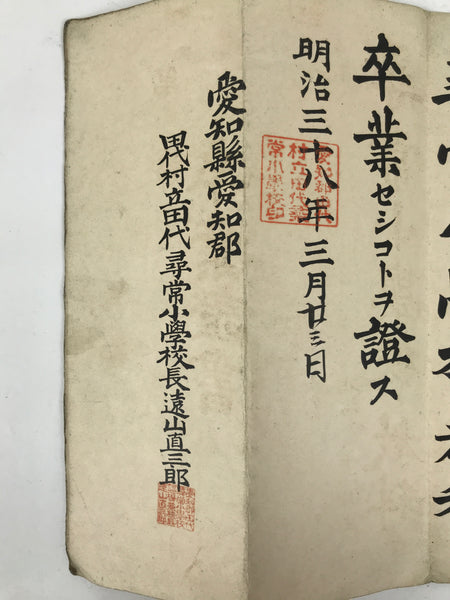 卒業セシコトヲ證ス
明治三十八年三月廿三日
愛知縣愛知郡
田代村立田代尋常小學校長遠山直三郎